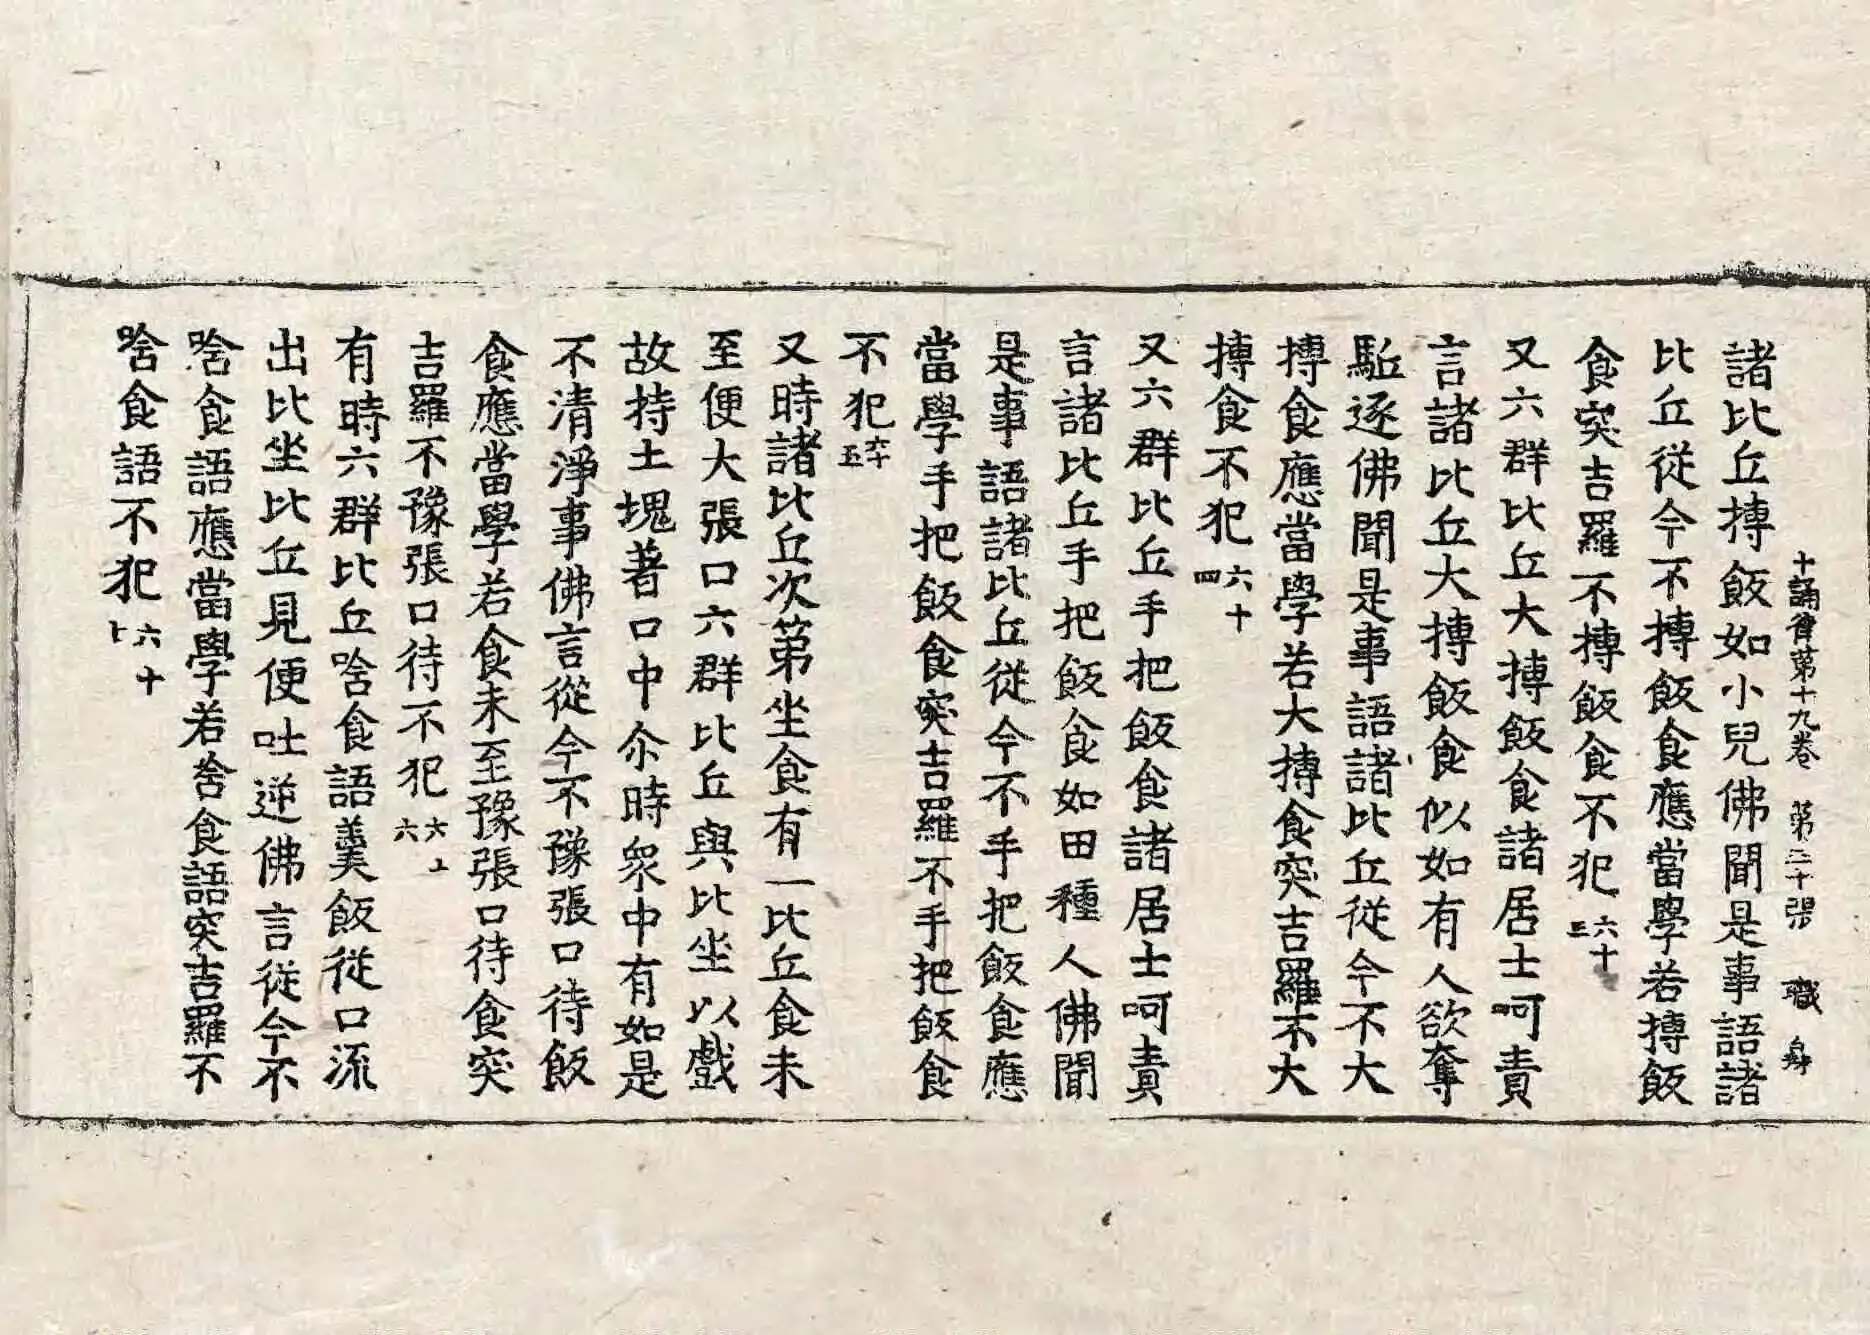 十誦律第十九卷 第二十張 職
諸比丘摶飯如小兒佛聞是事語諸
比丘從今不摶飯食應當學若摶飯
食突吉羅不摶飯食不犯六十三
又六群比丘大摶飯食諸居士呵責
言諸比丘大摶飯食似如有人欲奪
駈逐佛聞是事語諸比丘從今不大
摶食應當學若大摶食突吉羅不大
摶食不犯六十四
又六群比丘手把飯食諸居士呵責
言諸比丘手把飯食如田種人佛聞
是事語諸比丘從今不手把飯食應
當學手把飯食突吉羅不手把飯食
不犯六十五
又時諸比丘次第坐食有一比丘食未
至便大張口六群比丘與比坐以戲
故持土塊著口中尒時衆中有如是
不清淨事佛言從今不豫張口待飯
食應當學若食未至豫張口待食突
吉羅不豫張口待不犯六十六
有時六群比丘唅食語羹飯從口流
出比坐比丘見便吐逆佛言從今不
唅食語應當學若唅食語突吉羅不
唅食語不犯六十